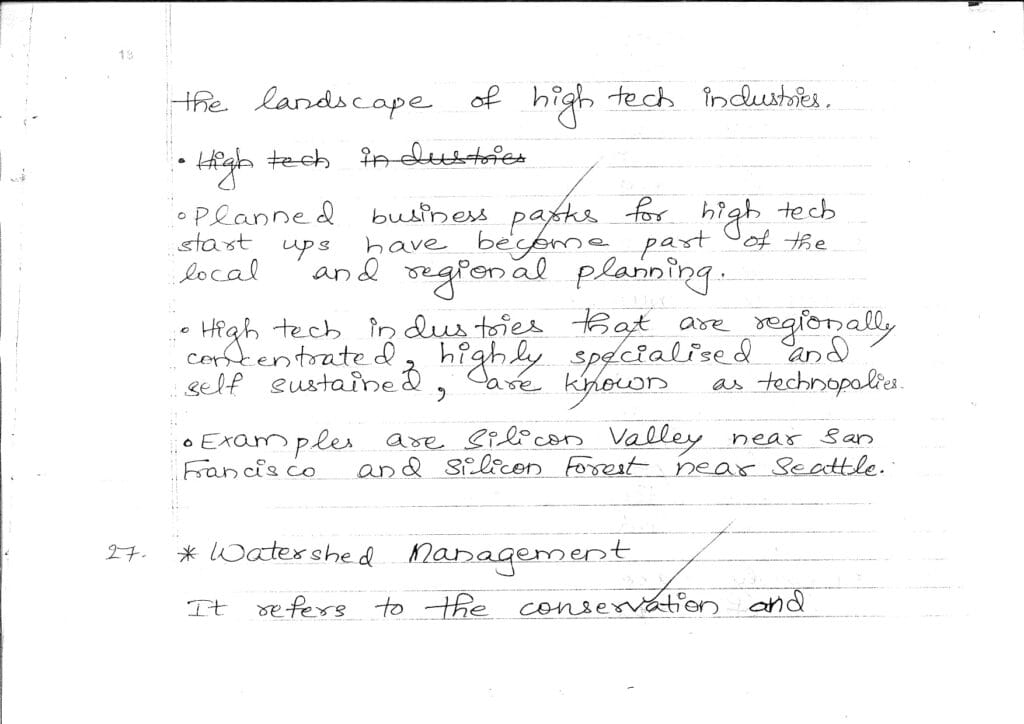 19
the landscape of high tech industries.
• High tech industries
• Planned business parks for high tech
start ups have become part of the
local and regional planning.
• High tech industries that are regionally
concentrated, highly specialised and
self sustained, are known as technopolies.
• Examples are Silicon Valley near San
Francisco and Silicon Forest near Seattle.
27. * Watershed Management
It refers to the conservation and